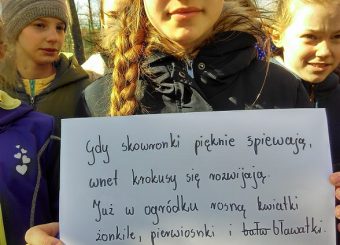 Gdy skowronki pięknie śpiewają,
wnet krokusy się rozwijają.
Już w ogródku rosną kwiatki
żonkile, pierwiosnki i bława̶ bławatki.